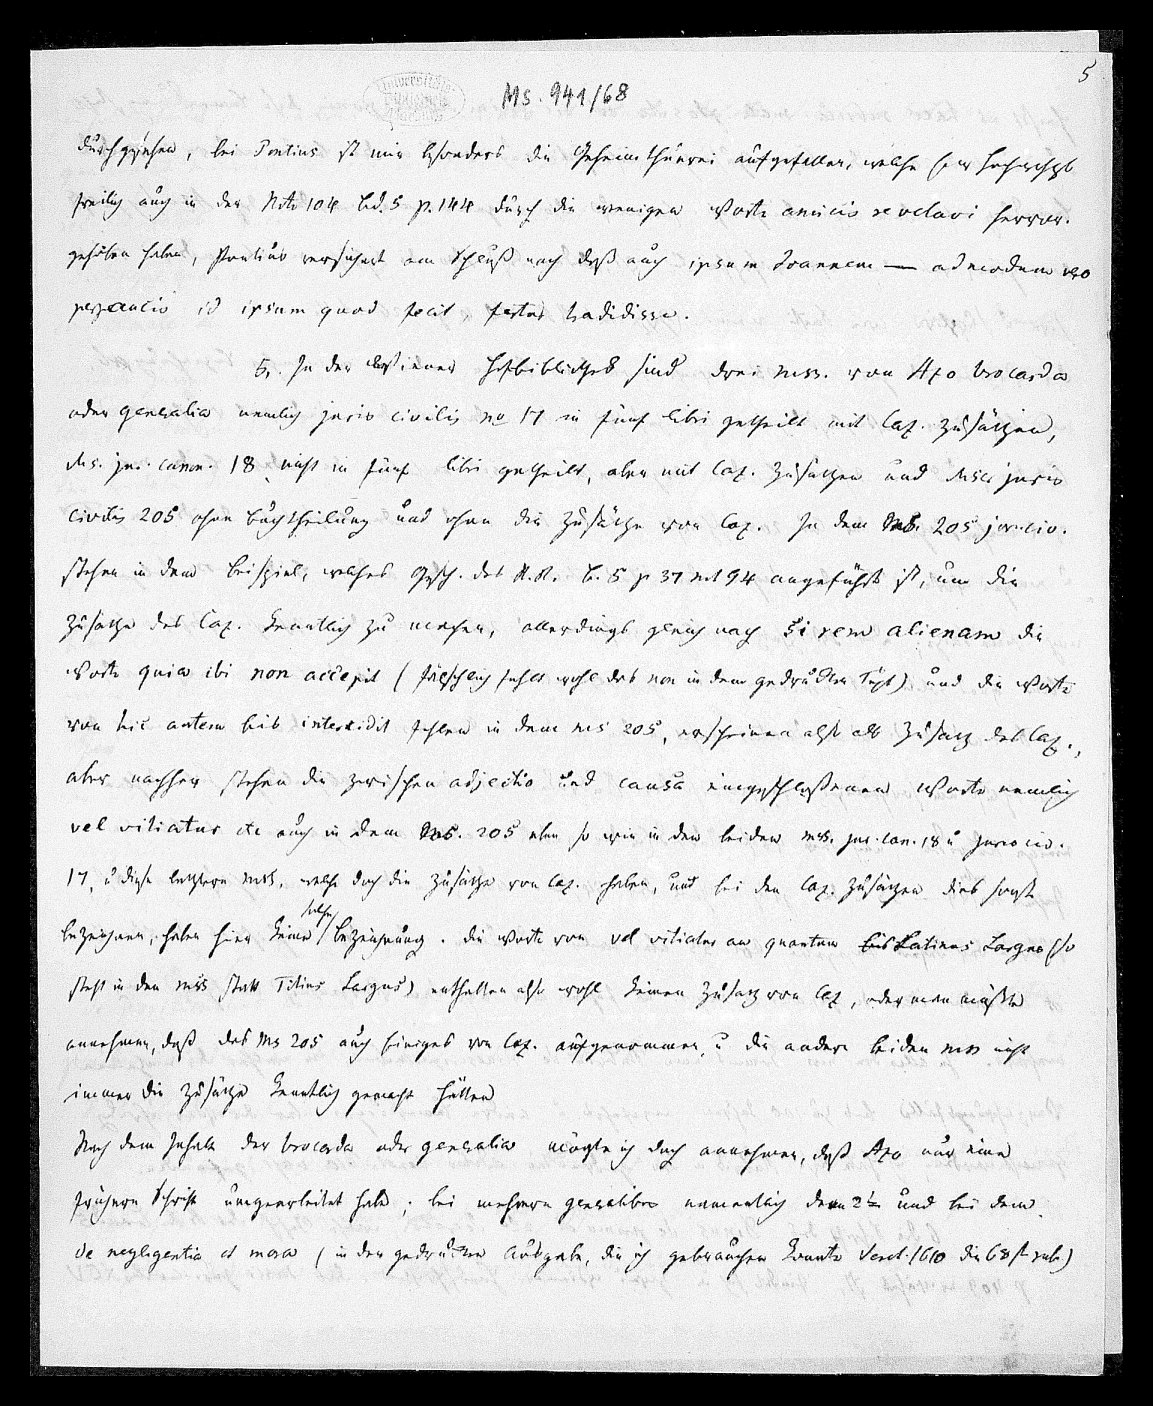 5
Ms. 941/68
durchgesehen, bei Pontius ist mir besonders die Geheimthuerei aufgefallen, welche
freilich auch in der Note 104 Bd. 5 p. 144 durch die wenigen Worte amicis revelavi hervor-
gehoben haben, Pontius versichert am Schluß noch daß auch ipsum Joannem — admodum
perpaucis id ipsum quod fecit, tradidisse.
5, In der Wiener Hofbibliothek sind drei mss. von Azo brocarda
oder generalia nemlich juris civilis no 17 in fünf libri getheilt mit Cay. Zusätzen,
Ms. jur. canon. 18 nicht in fünf libri getheilt, aber mit Cay. Zusätzen und Msc juris
civilis 205 ohne Buchtheilung und ohne die Zusätze von Cay. In dem Ms. 205 jur. civ.
stehen in dem Beispiel, welches Gesch. des R.R. B. 5 p 37 not 94 angeführt ist, um die
Zusätze des Cay. kenntlich zu machen, allerdings gleich nach Si rem alienam die
Worte quia ibi non accepit (fälschlich fehlt wohl das non in dem gedruckten Text) und die Worte
von hic autem bis intercidit fehlen in dem ms 205, erscheinen also als Zusatz des Cay.,
aber nachher stehen die zwischen adjectio und causa eingeschloßenen Worte nemlich
vel vitiatur etc auch in dem Ms. 205 eben so wie in den beiden mss. jur. can. 18 u juris civ.
17, u diese letztern mss. welche doch die Zusätze von Cay. haben, und bei den Cay. Zusätzen dies sonst
bezeichnen, haben hier keine solche Bezeichnung. die Worte von vel vitiatur an quantum bis Latinus Largus (so
steht in den mss statt Titius Largus) enthalten also wohl keinen Zusatz von Cay, oder man müßte
annehmen, daß das Ms 205 auch Einiges von Cay. aufgenommen, u die andern beiden mss nicht
immer die Zusätze kenntlich gemacht hätten
Nach dem Inhalt der brocarda oder generalia möchte ich doch annehmen, daß Azo nur eine
frühere Schrift umgearbeitet habe; bei mehrern generalibus namentlich dem 2ten und bei dem
de negligentia et mora (in der gedruckten Ausgabe, die ich gebrauchen konnte Venet. 1610 die 68st rub)